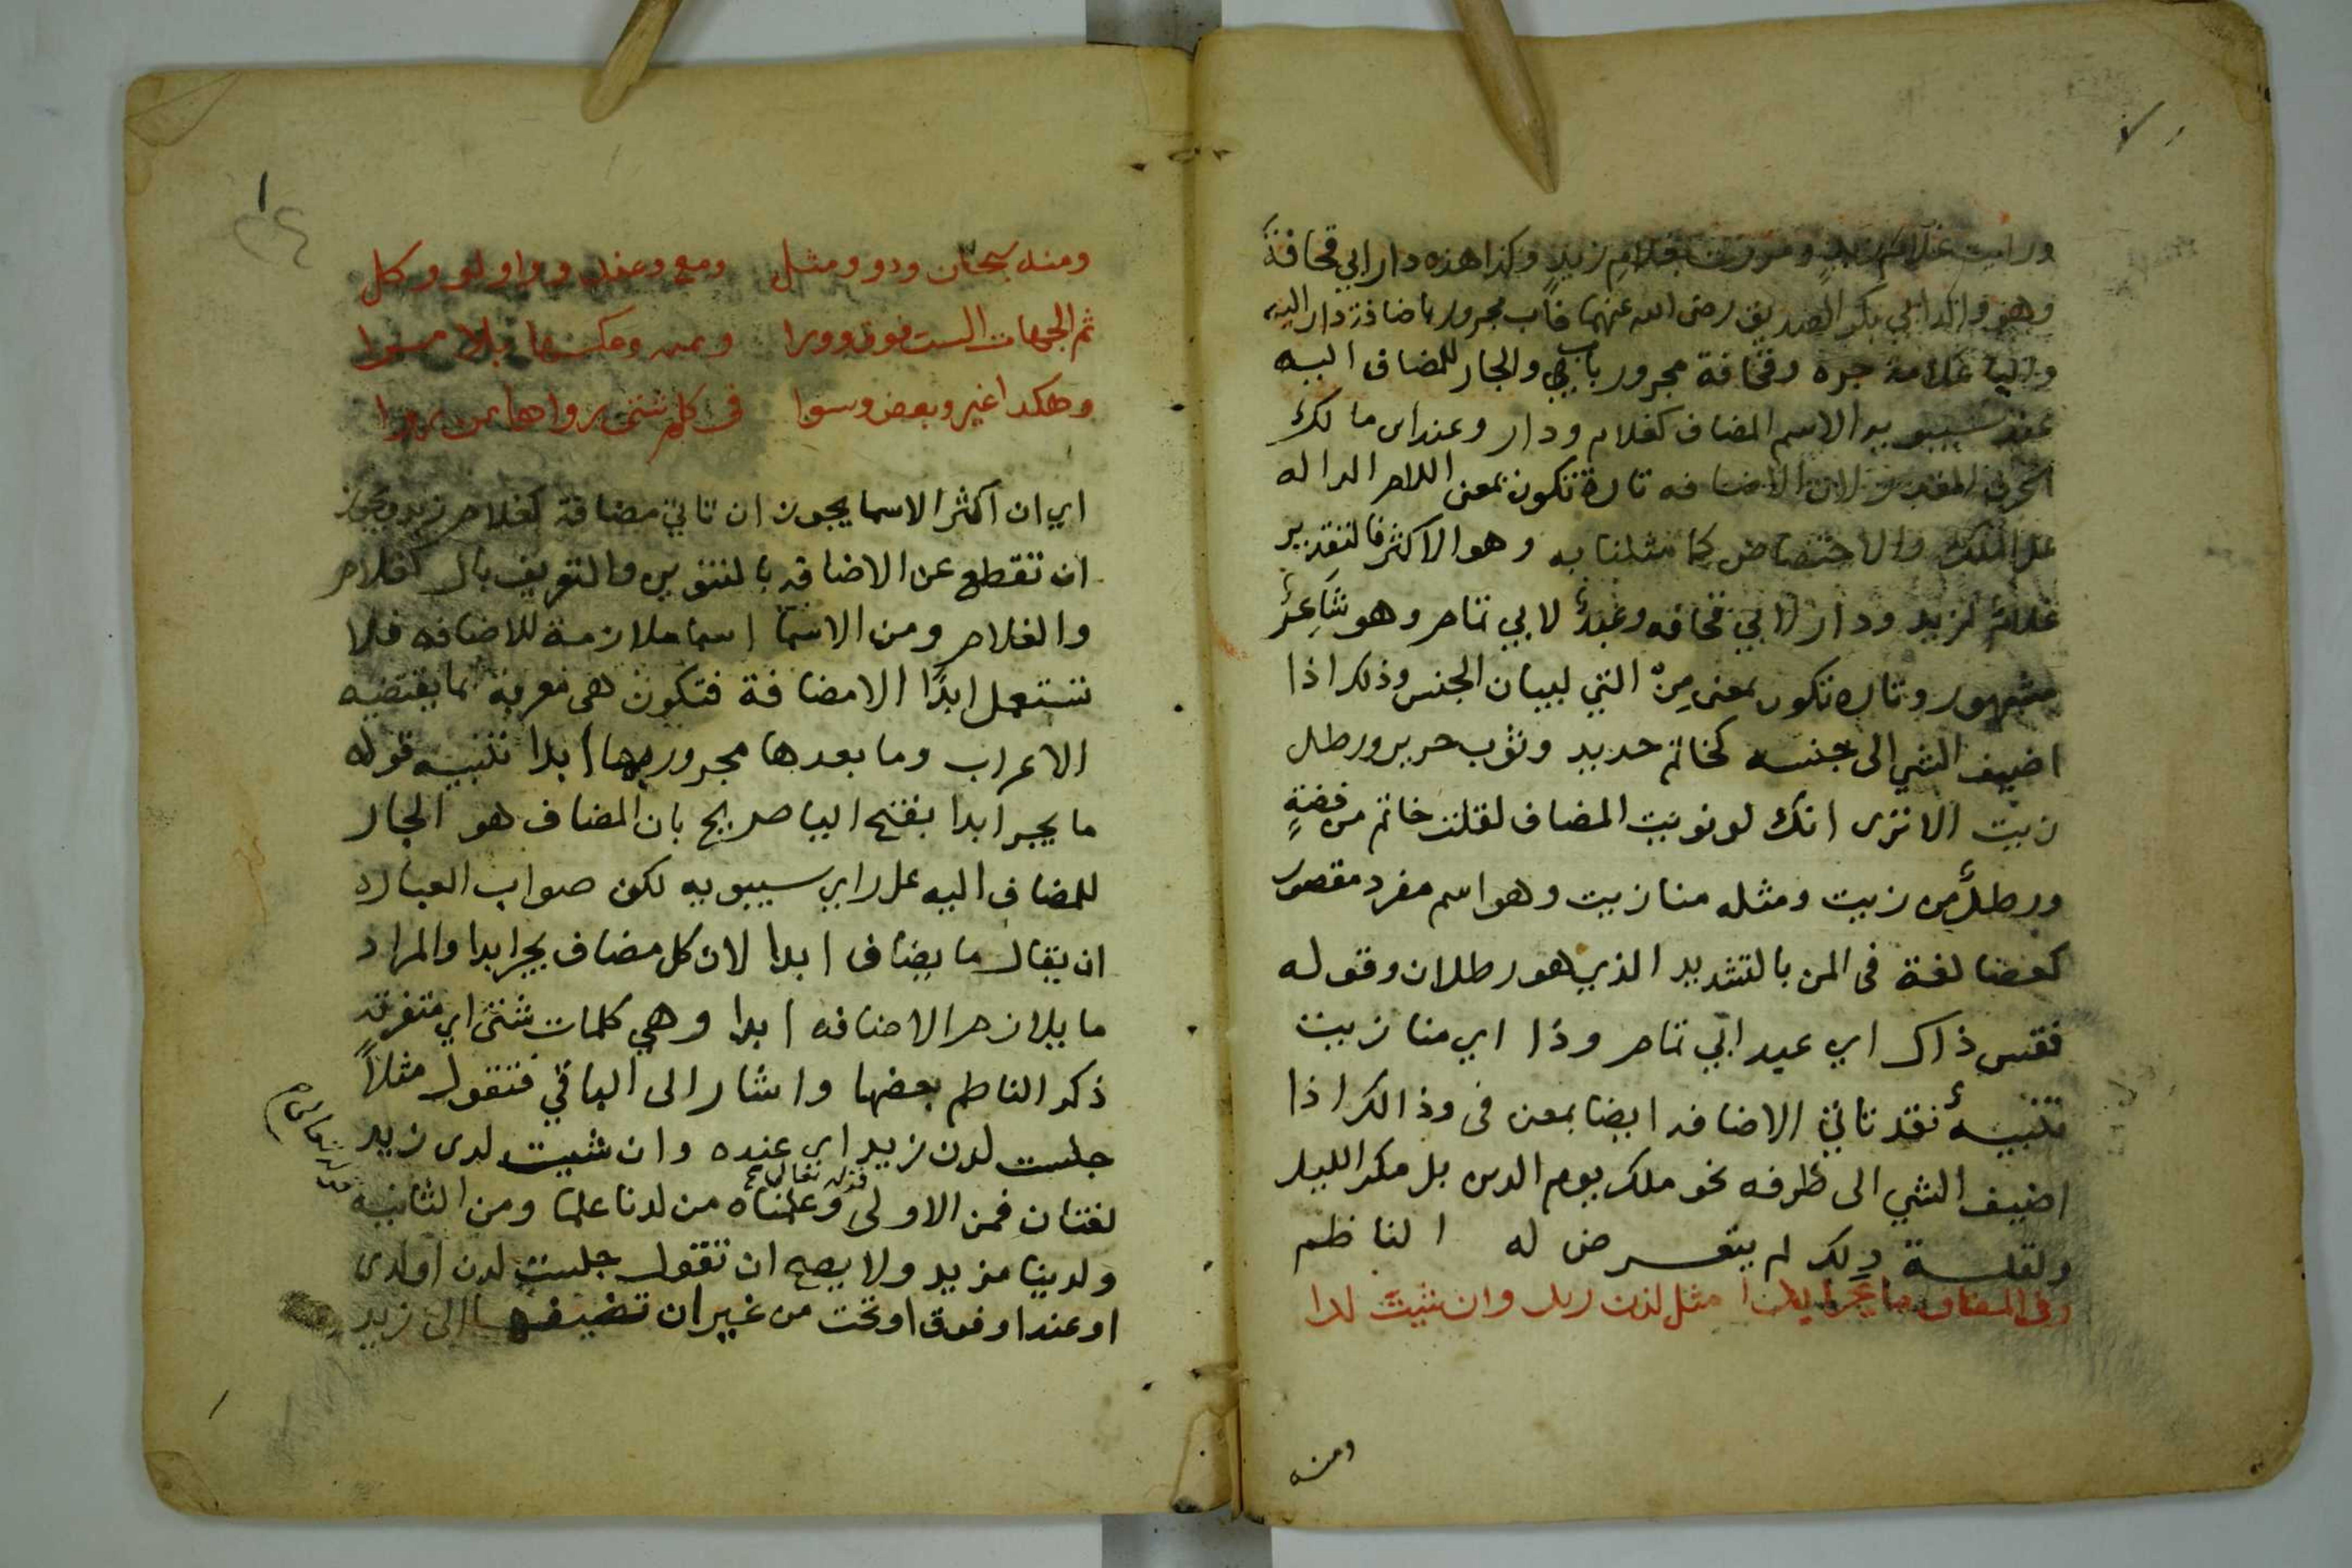 ورايت غلام زيد ومررت بغلام زيد وكذا هذه دار ابي قحافة
وهو والد ابي بكر الصديق رضى الله عنهما فاب مجرور باضافة دار اليه
واليا علامة جره وقحافة مجرور بابي والجار للمضاف اليه
عند سيبويه الاسم المضاف كغلام ودار وعند ابن مالك
الحرف المقدر لان الاضافه تارة تكون بمعنى اللام الداله
على الملك والاختصاص كما مثلنا به وهو الاكثر فالتقدير
غلام لزيد ودار لابي قحافه وعبد لابي تمام وهو شاعر
مشهور وتاره تكون بمعنى مِن التي لبيان الجنس وذلك اذا
اضيف الشي الى جنسه كخاتم حديد وثوب حرير ورطل
زيت الا ترى انك لو نونت المضاف لقلت خاتم من فضةٍ
ورطل من زيت ومثله منا زيت وهو اسم مفرد مقصور
كعصا لغة فى المن بالتشديد الذي هو رطلان وقوله
فقس ذاك اي عبد ابي تمام وذا اي منا زيت
تنبيه فقد تاتي الاضافه ايضا بمعنى فى وذالك اذا
اضيف الشي الى ظرفه نحو ملك يوم الدين بل مكر الليل
ولقلة ذلك لم يتعرض له الناظم
وفى المضاف ما يجر ابدا مثل لدن زيد وان شيت لدا
ومنه
ومنه سبحان وذو ومثل ومع وعند واولو وكل
ثم الجهات الست فوق وورا ويمنه وعكسها بلا مرا
وهكذا غير وبعض وسوا فى كلم شتى رواها من روا
اي ان اكثر الاسما يجوز ان تاتي مضافة كغلام زيد ويجوز
ان تقطع عن الاضافه بالتنوين والتعريف بال كغلام
والغلام ومن الاسما اسما ملازمة للاضافه فلا
تستعمل ابدًا الا مضافة فتكون هى معربة بما يقتضيه
الاعراب وما بعدها مجرور بها ابدا تنبيه قوله
ما يجر ابدا بفتح اليا صريح بان المضاف هو الجار
للمضاف اليه على راي سيبويه لكن صواب العباره
ان يقال ما يضاف ابدا لان كل مضاف يجر ابدا والمراد
ما يلازم الاضافه ابدا وهي كلمات شتى اي متفرقه
ذكر الناظم بعضها واشار الى الباقي فتقول مثلاً
جلست لدن زيد اي عنده وان شيت لدى زيد
قوله تعالى
لغتان فمن الاولى وعلمناه من لدنا علما ومن الثانيه
ولدينا مزيد ولا يصح ان تقول جلست لدن او لدى
او عند او فوق او تحت من غير ان تضيفها الى زيد